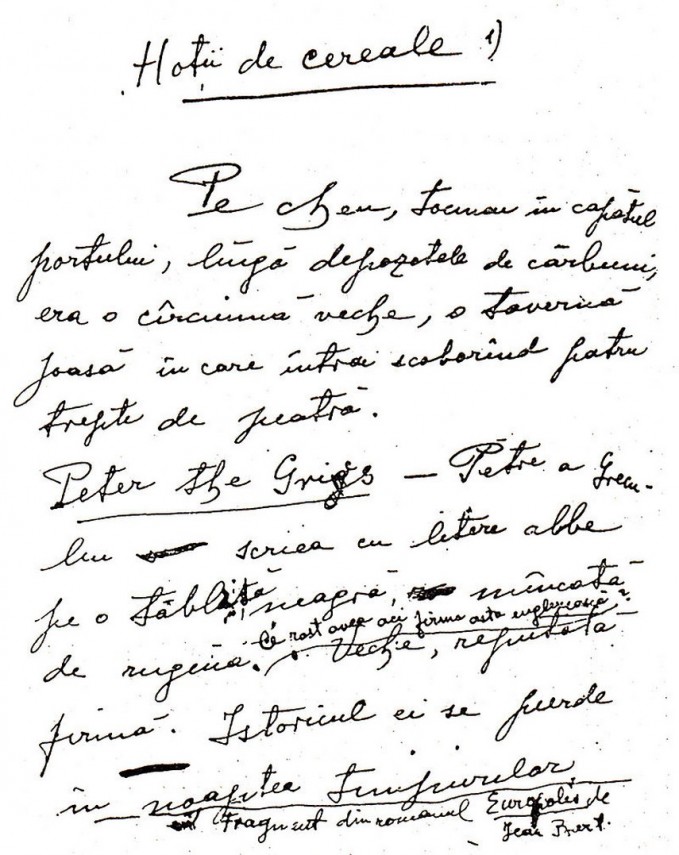 Hoții de cereale 1)
Pe cheu, tocmai în capătul
portului, lîngă depozotele de cărbuni,
era o cîrciumă veche, o tavernă
joasă în care intrai scoborînd patru
trepte de peatră.
Peter the Griggs — Petre a Grecu-
lui scriea cu litere albe
pe o tăbliță neagră, mîncată
Ce rost avea aci firma asta englezească?
de rugina. Veche, reputată
firmă. Istoricul ei se pierde
în noaptea timpurilor
Fragment din romanul Europolis de
Jean Bart.